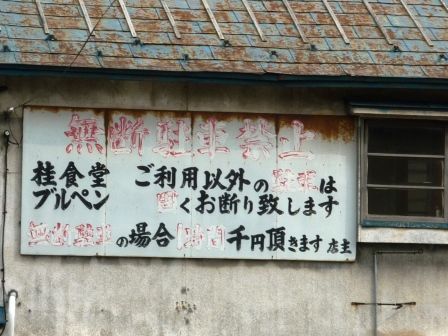 無断駐車禁止
桂食堂 ご利用以外の駐車は
ブルペン 堅くお断り致します
無断駐車の場合1時間千円頂きます 店主